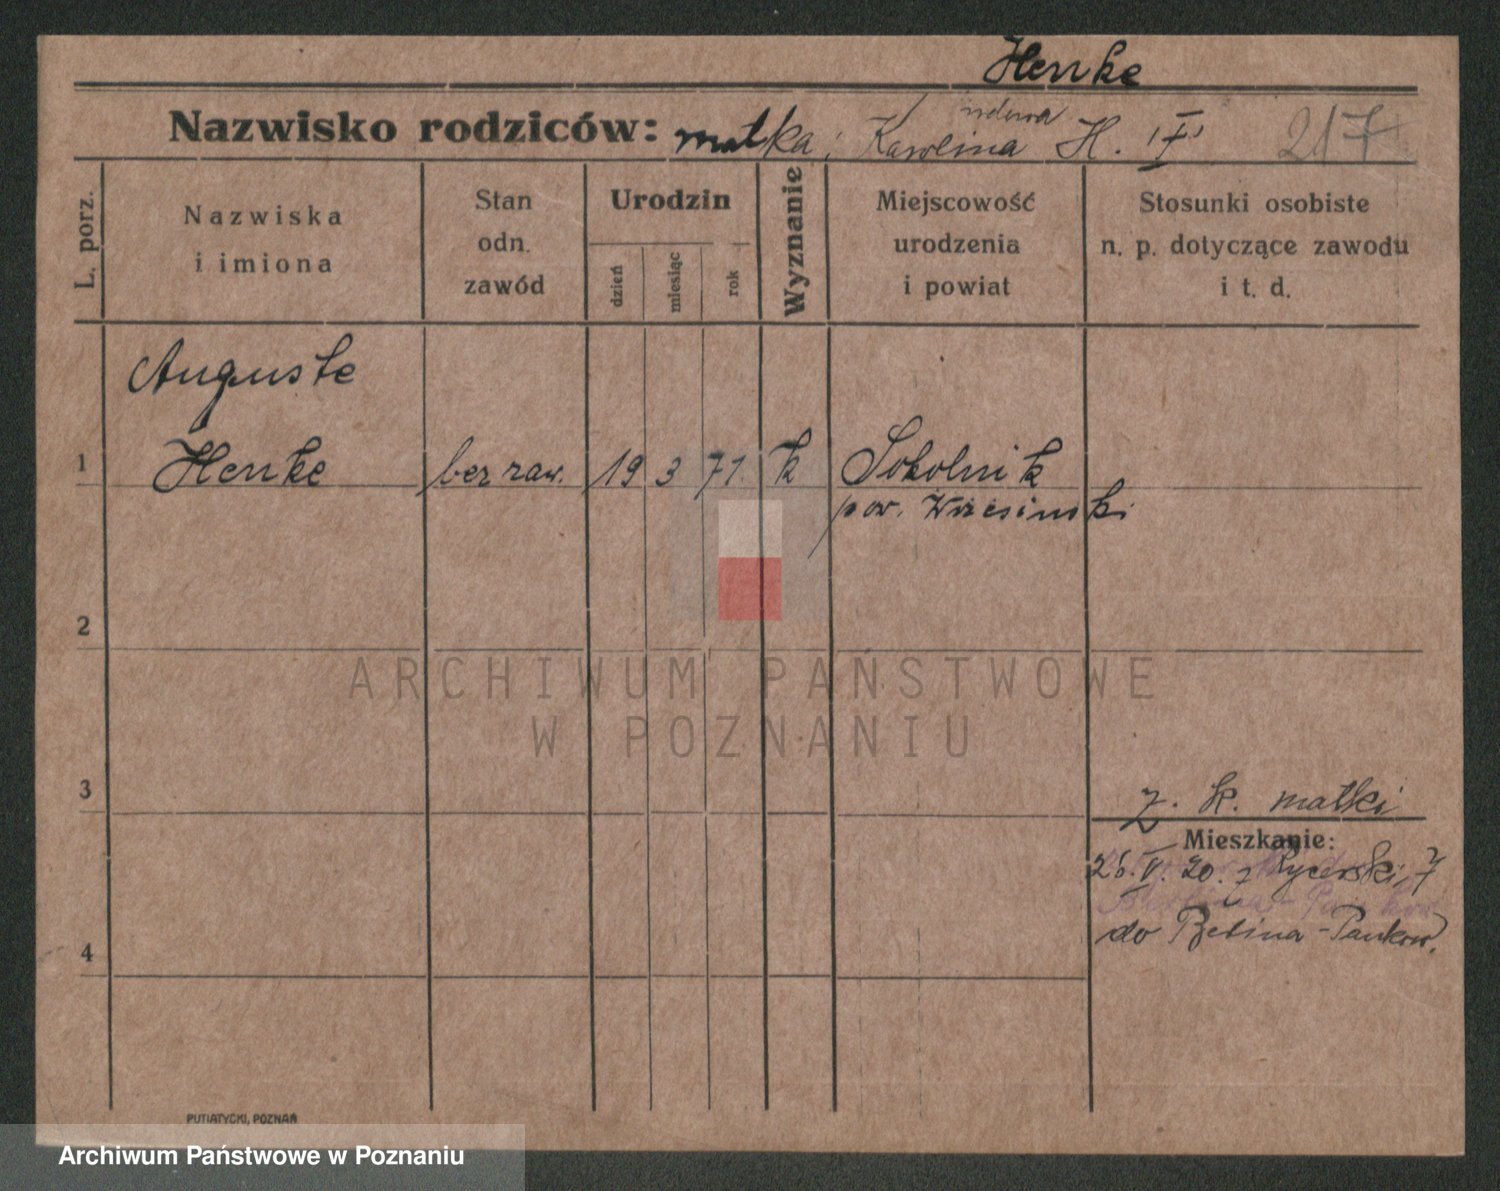 Henke
Nazwisko rodziców: matka: Karolina wdowa H. 217
L. porz.
Nazwiska
i imiona
Stan
odn.
zawód
Urodzin
dzień
miesiąc
rok
Wyznanie
Miejscowość
urodzenia
i powiat
Stosunki osobiste
n. p. dotyczące zawodu
i t. d.
Auguste
1 Henke bez zaw. 19 3 71. k Sokolnik
pow. Wrzesinski
2
ARCHIWUM PAŃSTWOWE
W POZNANIU
3
z. k. matki
Mieszkanie:
26. V. 20. z Rycerski, 7
do Berlina-Pankow.
4
PUTIATYCKI, POZNAŃ
Archiwum Państwowe w Poznaniu